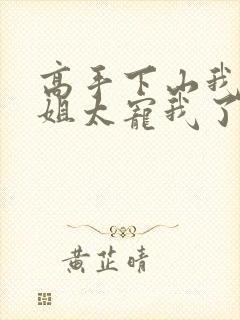 高手下山我
姐太宠我了
黄芷晴